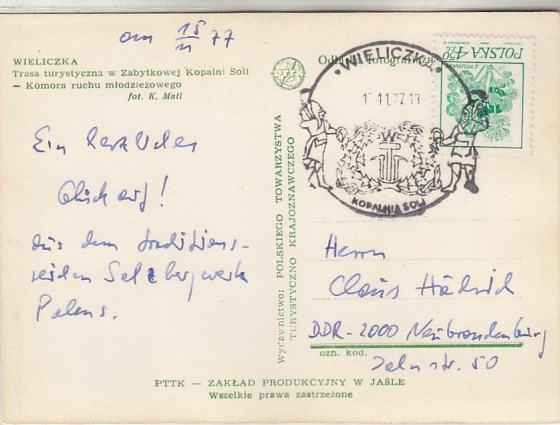 am 15/11 77
WIELICZKA
Trasa turystyczna w Zabytkowej Kopalni Soli
— Komora ruchu młodzieżowego
fot. K. Mail
Ein herzliches
Glück auf!
aus dem traditions-
reichen Salzbergwerk
Polens.
Wydawnictwo: POLSKIEGO TOWARZYSTWA
TURYSTYCZNO KRAJOZNAWCZEGO
Odbitka fotograficzna
• WIELICZKA •
11.77.13
KOPALNIA SOLI
POLSKA 4,50 ZŁ
Herrn
Claus Hädrich
DDR-2000 Neubrandenburg
ozn. kod.
str. 50
PTTK — ZAKŁAD PRODUKCYJNY W JAŚLE
Wszelkie prawa zastrzeżone